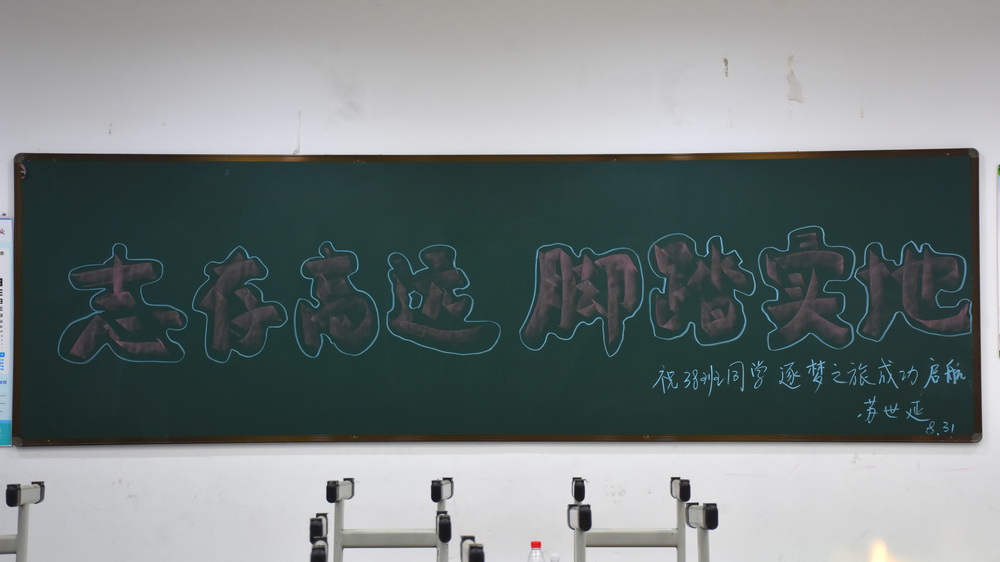 志存高远 脚踏实地
祝38班同学逐梦之旅成功启航
苏世延
8.31